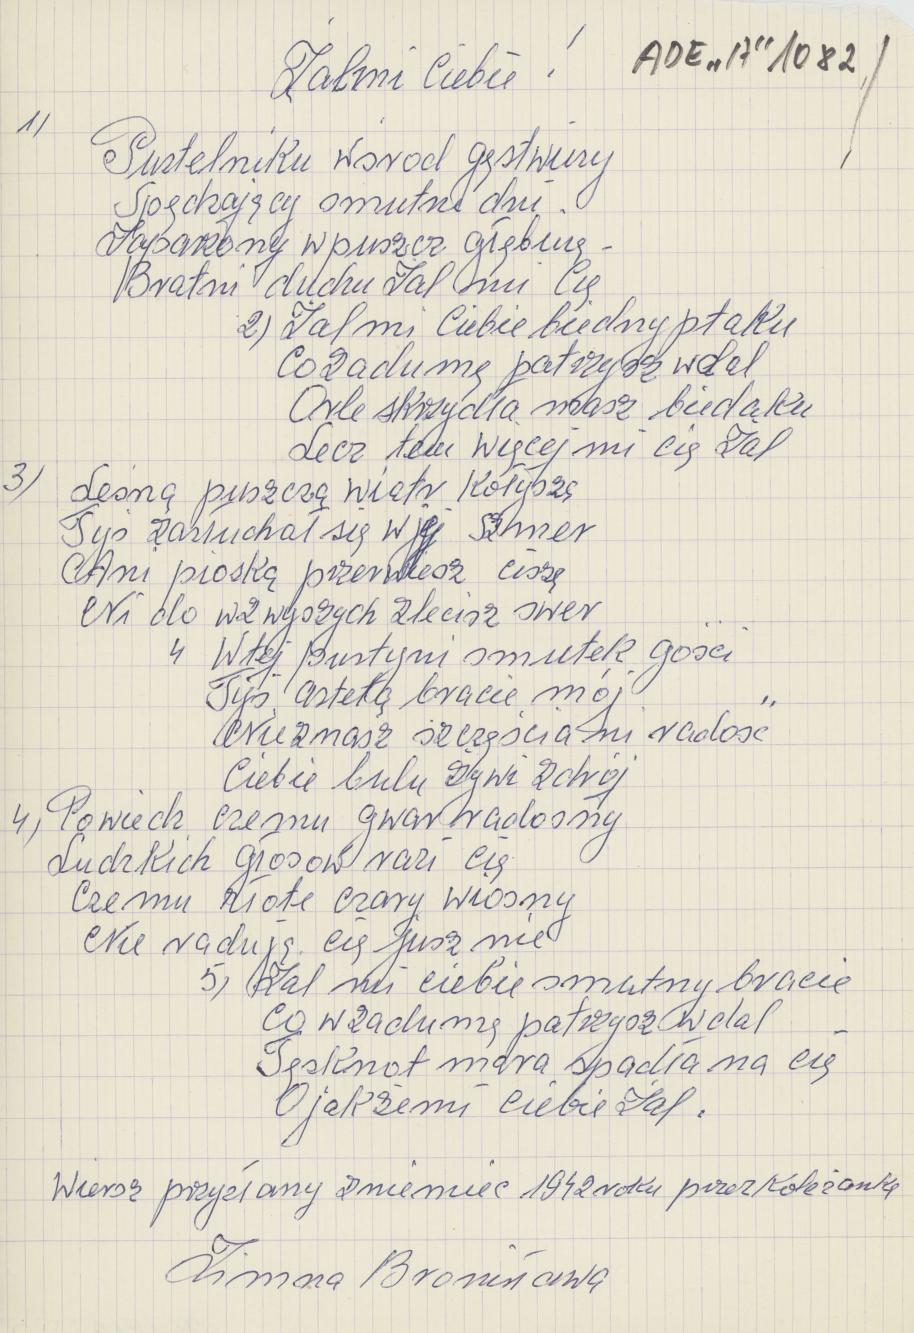 Żal mi Ciebie !
ADE „17" 1082
1)
Pustelniku wśrod gęstwiny
Spędzający smutne dni.
Zapatrzony w puszcz głębinę -
Bratni duchu Żal mi Cię
2) Żal mi Ciebie biedny ptaku
Co zadumą patrzysz w dal
Orle skrzydła masz biedaku
Lecz tem więcej mi cię Żal
3) Leśną puszczą wiatr kołyszą
Tyś zasłuchał się w jej szmer
Ani pioską przerwiesz ciszę
Ni do wzwyszych zlecisz swer
4 W tej pustyni smutek gości
Tyś astetą bracie mój
Nie znasz szczęścia ni radość "
Ciebie bulu żywi zdrój
4) Powiedz czemu gwar radosny
Ludzkich głosow razi cię
Czemu złote czary wiosny
Nie radują cię jusz nie
5) Żal mi ciebie smutny bracie
Co w zadumę patrzysz w dal
Tęsknot mara spadła na cię
O jakże mi Ciebie Żal.
Wiersz przysłany z niemiec 1942 roku przez Koleżankę
Zimna Bronisława